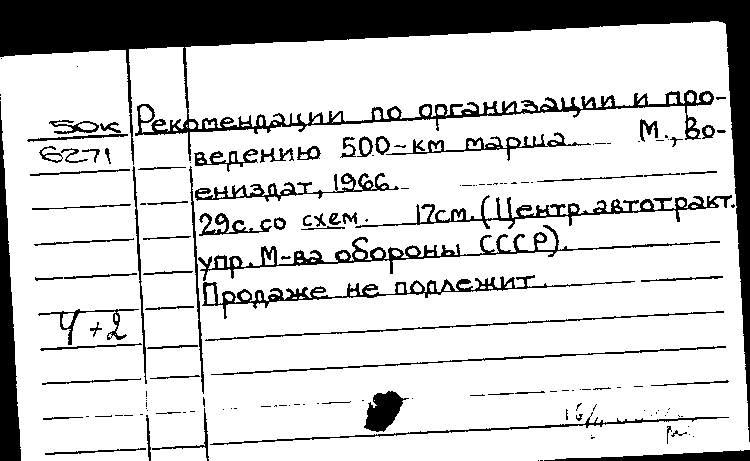 50к Рекомендации по организации и про-
6271 ведению 500-км марша. М., Во-
ениздат, 1966.
29с. со схем. 17см. (Центр. автотракт.
упр. М-ва обороны СССР).
Продаже не подлежит.
4+2
16/